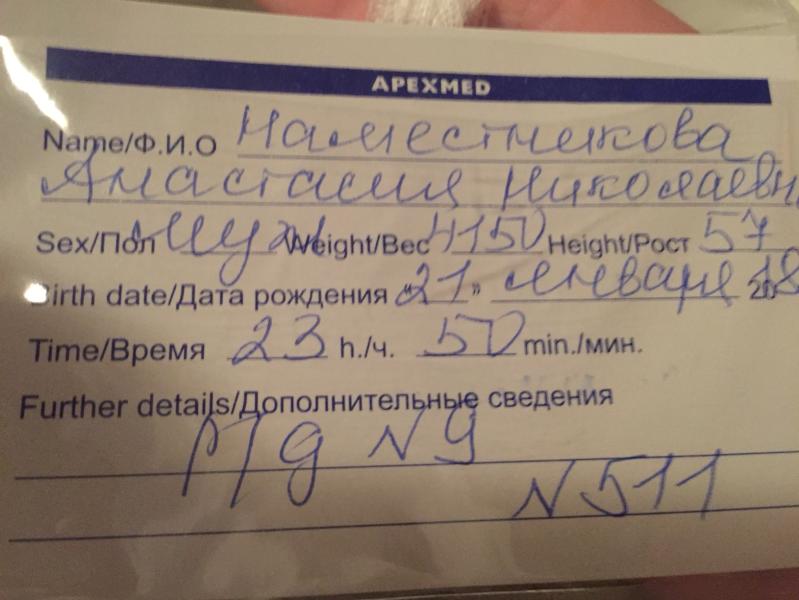 APEXMED
Name/Ф.И.О Наместникова
Анастасия Николаевн
Sex/Пол муж Weight/Вес 4150 Height/Рост 57
Birth date/Дата рождения "21" января 2018
Time/Время 23 h./ч. 50 min./мин.
Further details/Дополнительные сведения
N 9
N 511